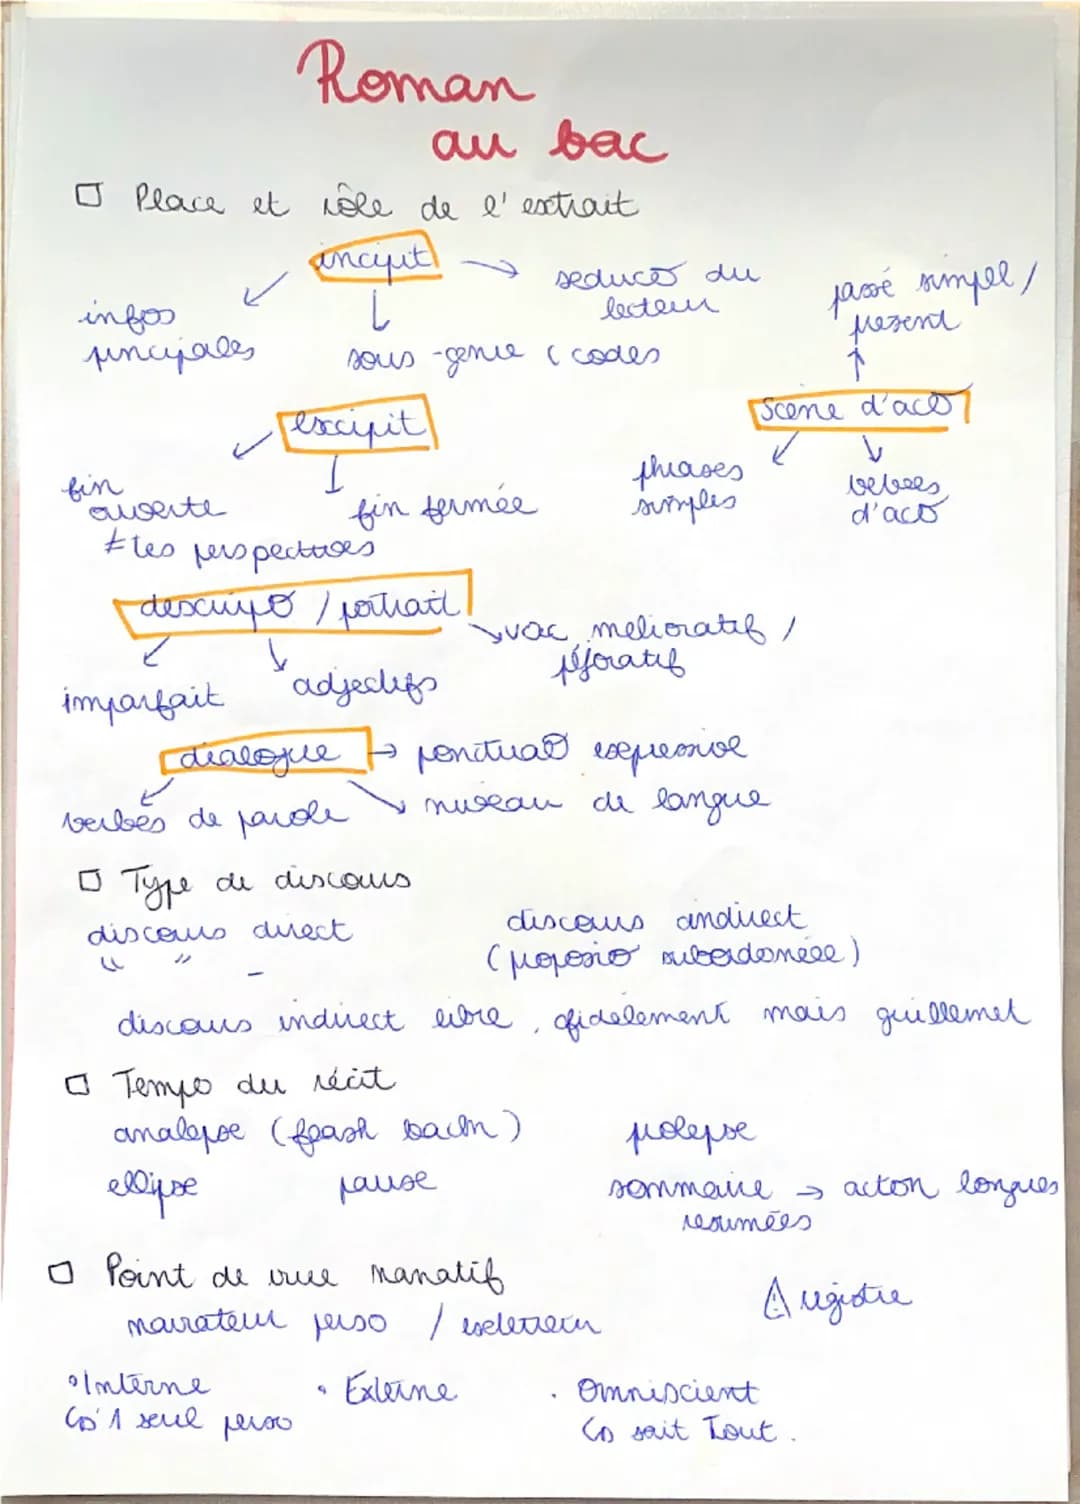 Roman
au bac
□ Place et rôle de l'extrait
incipit → seducø du
lecteur
infos
principales
sous-genre ( codes
passé simpel /
present
scene d'acø
phrases
simples
verbes
d'acø
excipit
fin
ouverte
≠ tes perspectives
fin fermée
descripø / portrait
voc melioratif /
péjoratif
imparfait
adjectifs
dialogue → ponctuaø expressive
verbes de parole
niveau de langue
□ Type de discours
discours direct
" " -
discours indirect
(proposiø subordonnée)
discours indirect libre, fidèlement mais guillemet
□ Tempo du récit
analepse (flash back)
prolepse
ellipse pause
sommaire → action longues
resumées
□ Point de vue narratif
narrateur perso / exterieur
⚠ registre
• Interne • Externe • Omniscient
↳ 1 seul perso
↳ sait Tout.